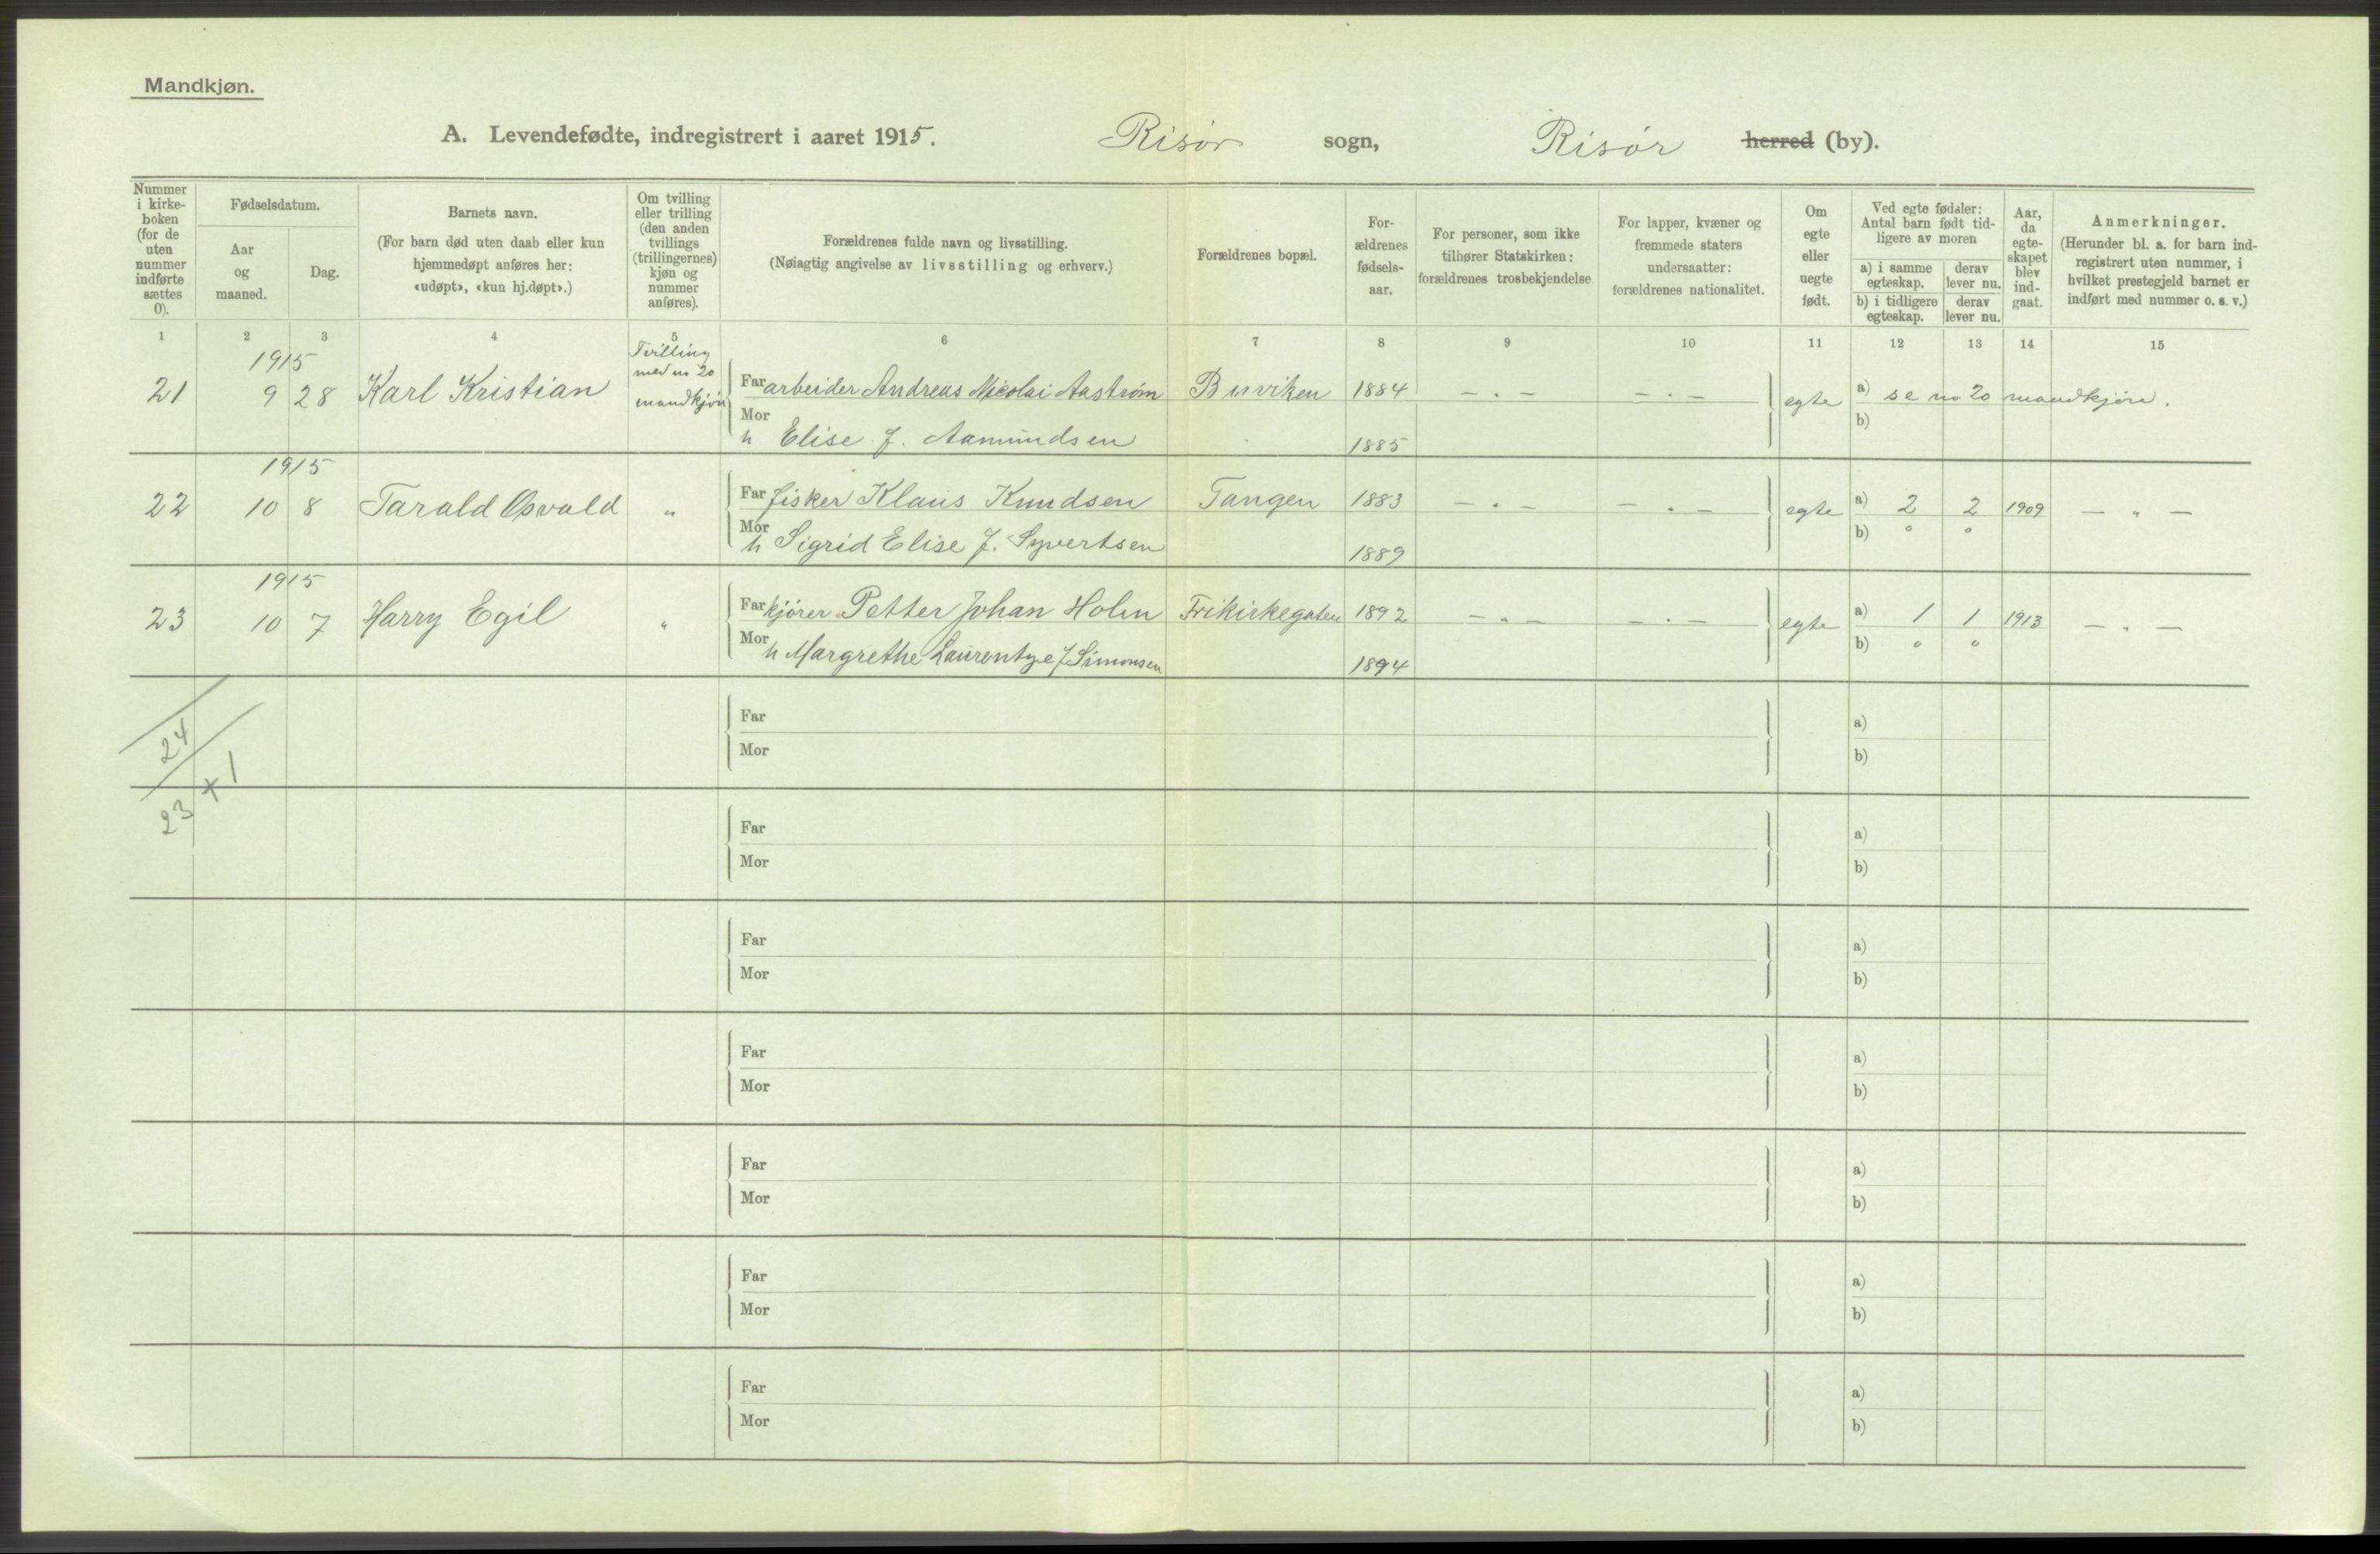 Mandkjøn.
A. Levendefødte, indregistrert i aaret 1915. Risør sogn, Risør herred (by).
Nummer i kirke-boken (for de uten nummer indførte sættes 0).
Fødselsdatum.
Aar og maaned.
Dag.
Barnets navn.
(For barn død uten daab eller kun hjemmedøpt anføres her: «udøpt», «kun hj.døpt».)
Om tvilling eller trilling (den anden tvillings (trillingernes) kjøn og nummer anføres).
Forældrenes fulde navn og livsstilling.
(Nøiagtig angivelse av livsstilling og erhverv.)
Forældrenes bopæl.
For-ældrenes fødsels-aar.
For personer, som ikke tilhører Statskirken: forældrenes trosbekjendelse
For lapper, kvæner og fremmede staters undersaatter: forældrenes nationalitet.
Om egte eller uegte født.
Ved egte fødsler: Antal barn født tid-ligere av moren
a) i samme egteskap.
derav lever nu.
b) i tidligere egteskap.
derav lever nu.
Aar, da egte-skapet blev ind-gaat.
Anmerkninger.
(Herunder bl. a. for barn ind-registrert uten nummer, i hvilket prestegjeld barnet er indført med nummer o. s. v.)
1 2 3 4 5 6 7 8 9 10 11 12 13 14 15
1915 Tvilling
med no 20
21 9 28 Karl Kristian mandkjøn Far arbeider Andreas Nicolai Aastrøm Buviken 1884 — . — — . — egte a) se no 20 mandkjøn.
Mor h Elise f. Aamundsen 1885 b)
1915
22 10 8 Tarald Osvald " Far fisker Klaus Knudsen Tangen 1883 — . — — . — egte a) 2 2 1909 — " —
Mor h Sigrid Elise f. Syvertsen 1889 b) 0 0
1915
23 10 7 Harry Egil " Far kjører Petter Johan Holm Frikirkegaten 1892 — . — — . — egte a) 1 1 1913 — " —
Mor h Margrethe Laurentze f Simonsen 1894 b) 0 0
24
23 + 1
Far a)
Mor b)
Far a)
Mor b)
Far a)
Mor b)
Far a)
Mor b)
Far a)
Mor b)
Far a)
Mor b)
Far a)
Mor b)